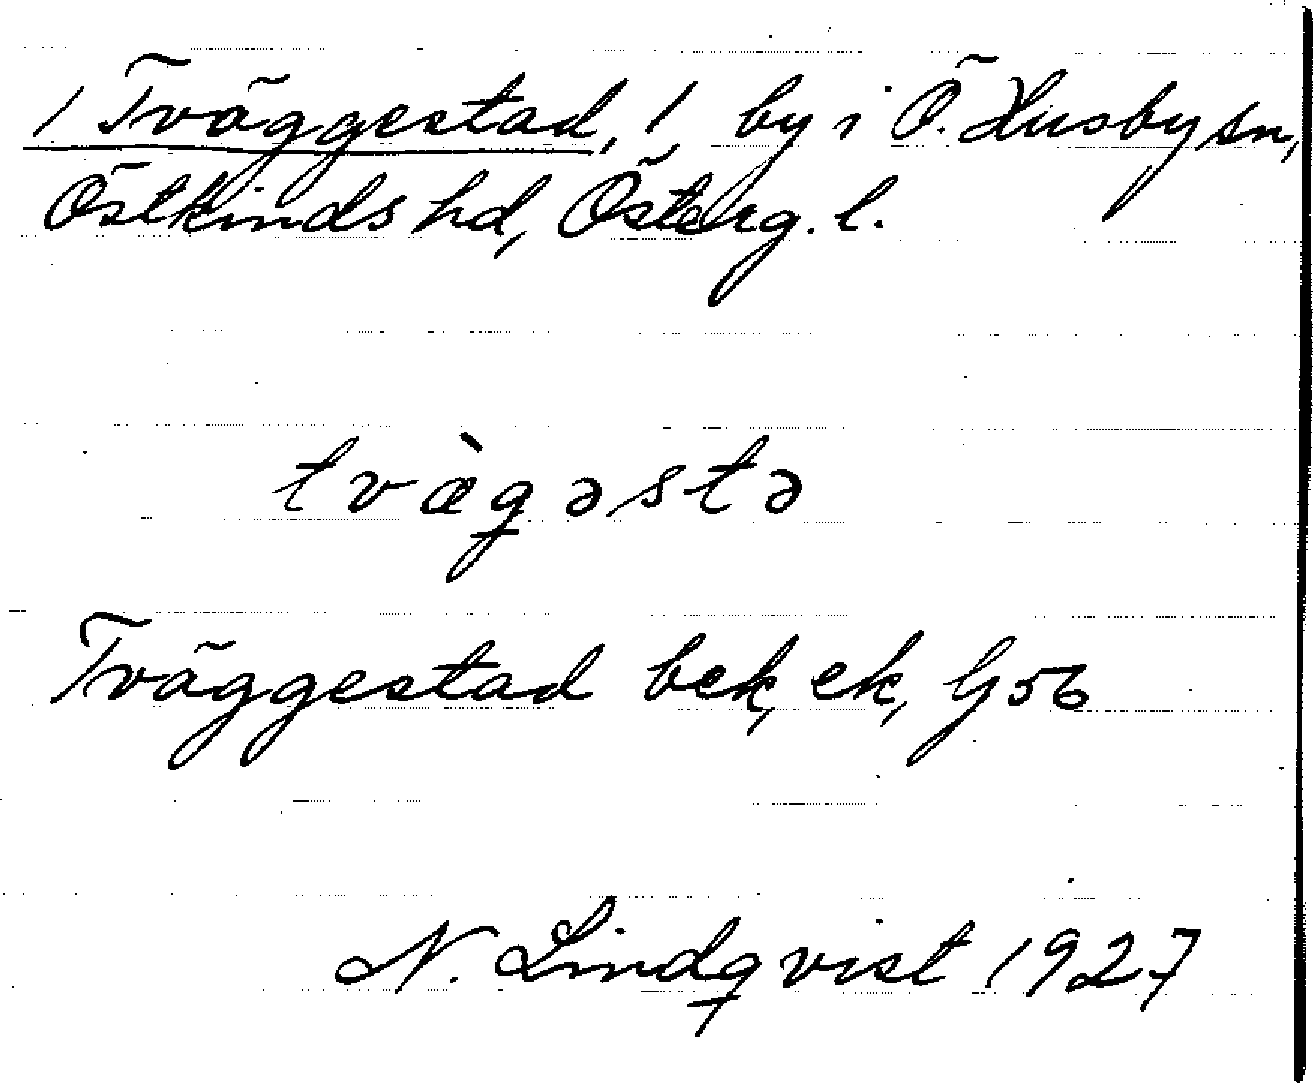 / Tväggestad, / by i Ö. Husby sn,
Östkinds hd, Österg. l.
tvæ̀gəstə
Tväggestad bek, ek, G 56
N. Lindqvist 1927